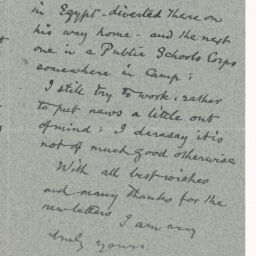 in Egypt - diverted there on
his way home - and the next
one in a Public Schools Corps
somewhere in Camp:
I still try to work, rather
to put news a little out
of mind: I daresay it is
not of much good otherwise.
With all best wishes
and many thanks for the
newsletters I am very
truly yours